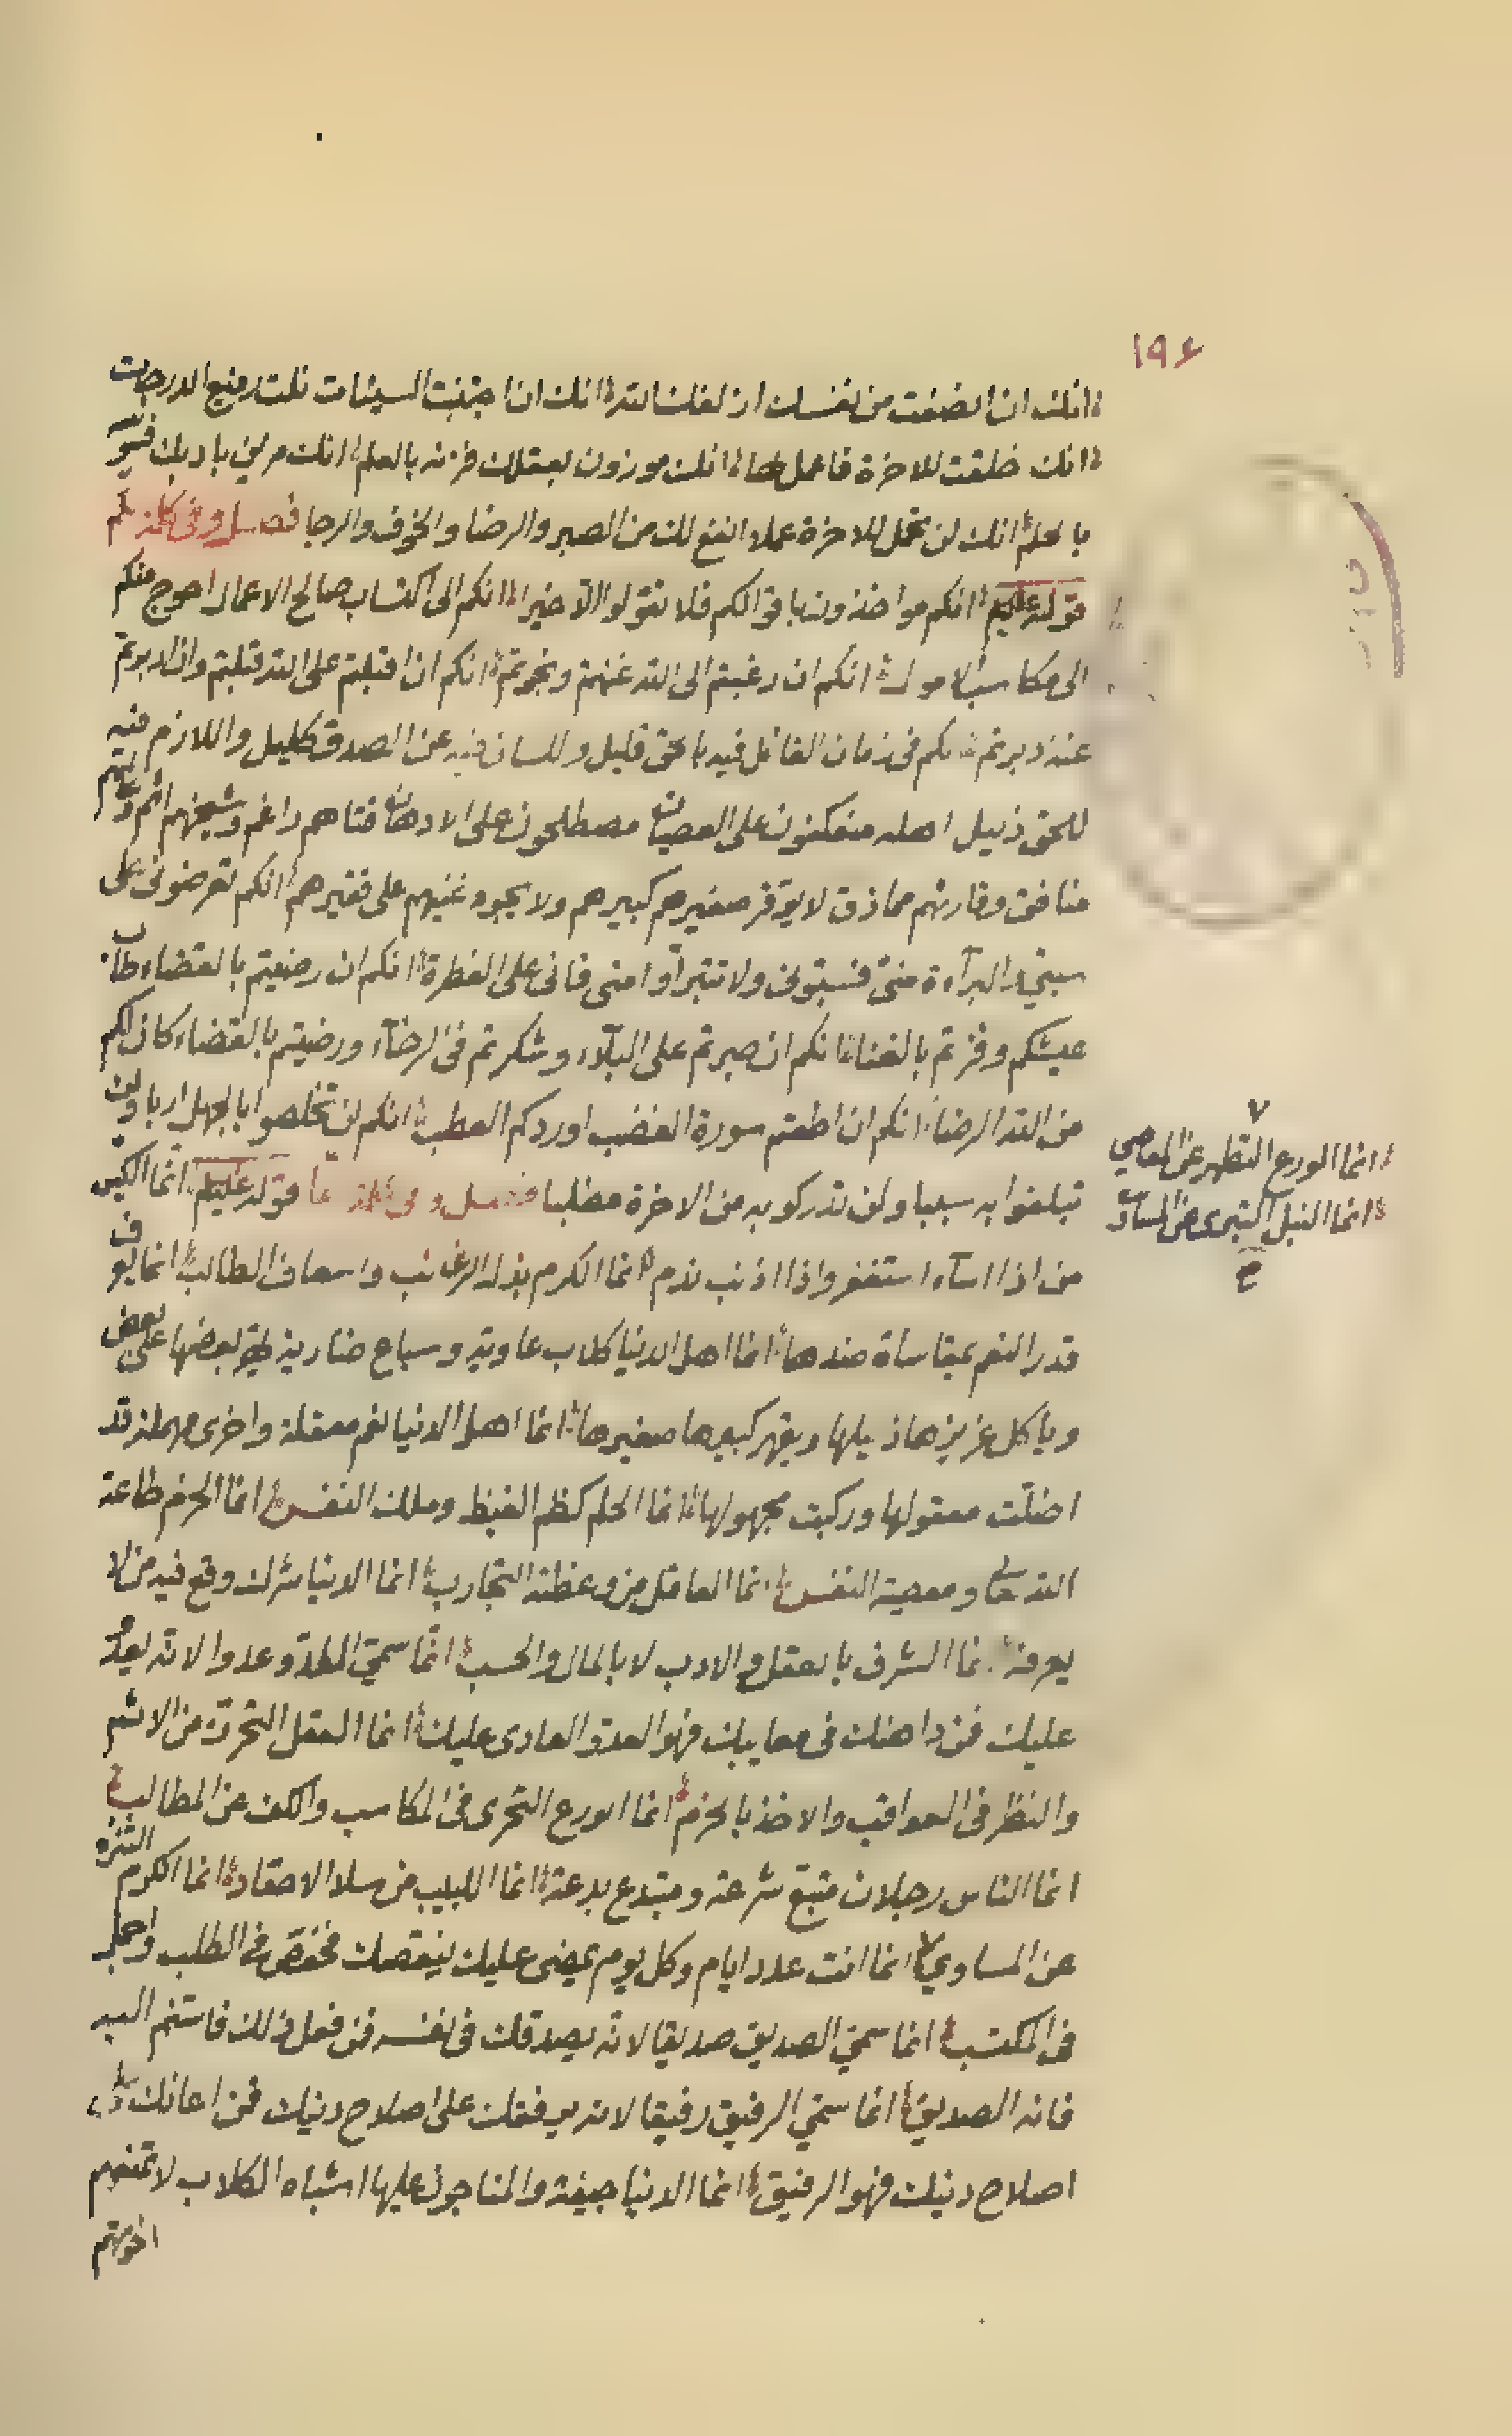 ١٩٤
انك ان انصفت من نفسك ازلفك الله انك ان اجتنبت السيئات نلت رفيع الدرجات
انك خلقت للاخرة فاعمل لها انك موزون بعقلك فزنه بالعلم انك مزين بادبك فزينه
بالحلم انك لن تحمل للاخرة عملا انفع لك من الصبر والرضا والخوف والرجا فصل وفى كلمة انكم
قوله عليه انكم مواخذون باقوالكم فلا تقولوا الا خيرا انكم الى اكتساب صالح الاعمال احوج منكم
الى مكاسب الاموال انكم ان رغبتم الى الله غنمتم ونجوتم انكم ان اقبلتم على الله قبلتم وان ادبرتم
عنه دبرتم انكم فى زمان القائل فيه بالحق قليل واللسان فيه عن الصدق كليل واللازم فيه
للحق ذليل اهله منعكفون على العصيان مصطلحون على الادهان فتاهم وشيخهم اثم وعالمهم
منافق وقاريهم مماذق لا يوقر صغيرهم كبيرهم ولا يجود غنيهم على فقيرهم انكم تعرضوني على
سبي والبرآءة مني فسبوني ولا تتبرأوا مني فاني على الفطرة انكم ان رضيتم بالقضاء طاب
عيشكم وفزتم بالغنا انكم ان صبرتم على البلآء وشكرتم فى الرخآء ورضيتم بالقضاء كان لكم
من الله الرضا انكم ان اطعتم سورة الغضب اوردكم العطب انكم لن تخلصوا بالجهل اربا ولن
تبلغوا به سببا ولن تدركوا به من الاخرة مطلبا فصل وفى كلمة انما قوله عليه انما الكيس
من اذا اسآء استغفر واذا اذنب ندم انما الكرم بذل الرغائب واسعاف الطالب انما يعرف
قدر النعم بمقاساة ضدها انما اهل الدنيا كلاب عاوية وسباع ضارية يهر بعضها على بعض
وياكل عزيزها ذليلها ويقهر كبيرها صغيرها انما اهل الدنيا نعم معقلة واخرى مهملة قد
اضلت معقولها وركبت مجهولها انما الحلم كظم الغيظ وملك النفس انما الحزم طاعة
الله ومعصية النفس انما العاقل من وعظته التجارب انما الدنيا شرك وقع فيه من لا
يعرفه انما الشرف بالعقل والادب لا بالمال والحسب انما سمي العدو عدوا لانه يعدو
عليك فمن داهنك فى معايبك فهو العدو العادى عليك انما العقل التحرز من الاثم
والنظر فى العواقب والاخذ بالحزم انما الورع التحرى فى المكاسب والكف عن المطالب
انما الناس رجلان متبع شرعة ومبتدع بدعة انما اللبيب من سلا الاحقاد انما الكرم التنزه
عن المساوي انما انت عدد ايام وكل يوم يمضى عليك ينقصك فخفض فى الطلب واجمل
فى المكتسب انما سمي الصديق صديقا لانه يصدقك فى نفسه فمن فعل ذلك فاستنم اليه
فانه الصديق انما سمي الرفيق رفيقا لانه يرفقك على اصلاح دينك فمن اعانك على
اصلاح دينك فهو الرفيق انما الدنيا جيفة والمتاجون عليها اشباه الكلاب لا تمنعهم
اخوتهم
انما الورع التطهر عن المعاصي
انما النبل التبرى عن المساوى